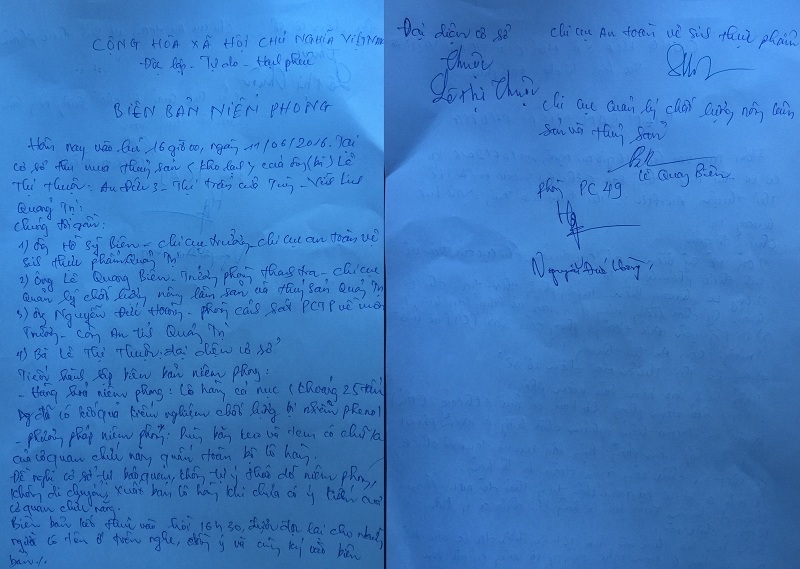 CỘNG HÒA XÃ HỘI CHỦ NGHĨA VIỆT NAM
Độc lập - Tự do - Hạnh phúc
BIÊN BẢN NIÊM PHONG
Hôm nay vào lúc 16 giờ 00, ngày 11/06/2016. Tại
cơ sở thu mua thủy sản (kho lạnh) của ông (bà) Lê
Thị Thuộc: An Đức 3 - Thị trấn Cửa Tùng - Vĩnh Linh
Quảng Trị:
Chúng tôi gồm:
1) Ông Hồ Sỹ Biên - chi cục trưởng - chi cục an toàn vệ
sinh thực phẩm Quảng Trị
2) Ông Lê Quang Biên - Trưởng phòng thanh tra - chi cục
Quản lý chất lượng nông lâm sản và thủy sản Quảng Trị
3) Ông Nguyễn Đức Hoàng - phòng cảnh sát PCTP về môi
trường - Công An tỉnh Quảng Trị
4) Bà Lê Thị Thuộc: đại diện cơ sở
Tiến hành lập biên bản niêm phong:
- Hàng hóa niêm phong: Lô hàng cá nục (khoảng 25 tấn
đã có kết quả kiểm nghiệm chất lượng bị nhiễm phenol
- phương pháp niêm phong: bằng keo và tem có chữ ký
của cơ quan chức năng quấn toàn bộ lô hàng.
Đề nghị cơ sở tự bảo quản, không tự ý tháo dỡ niêm phong,
không di chuyển, xuất bán lô hàng khi chưa có ý kiến của
cơ quan chức năng.
Biên bản kết thúc vào hồi 16h30, được đọc lại cho những
người có tên ở trên nghe, đồng ý và cùng ký vào biên
bản./.
Đại diện cơ sở
Thuộc
Lê Thị Thuộc
chi cục An toàn vệ sinh thực phẩm
chi cục quản lý chất lượng nông lâm
sản và thủy sản
Lê Quang Biên
phòng PC 49
Nguyễn Đức Hoàng